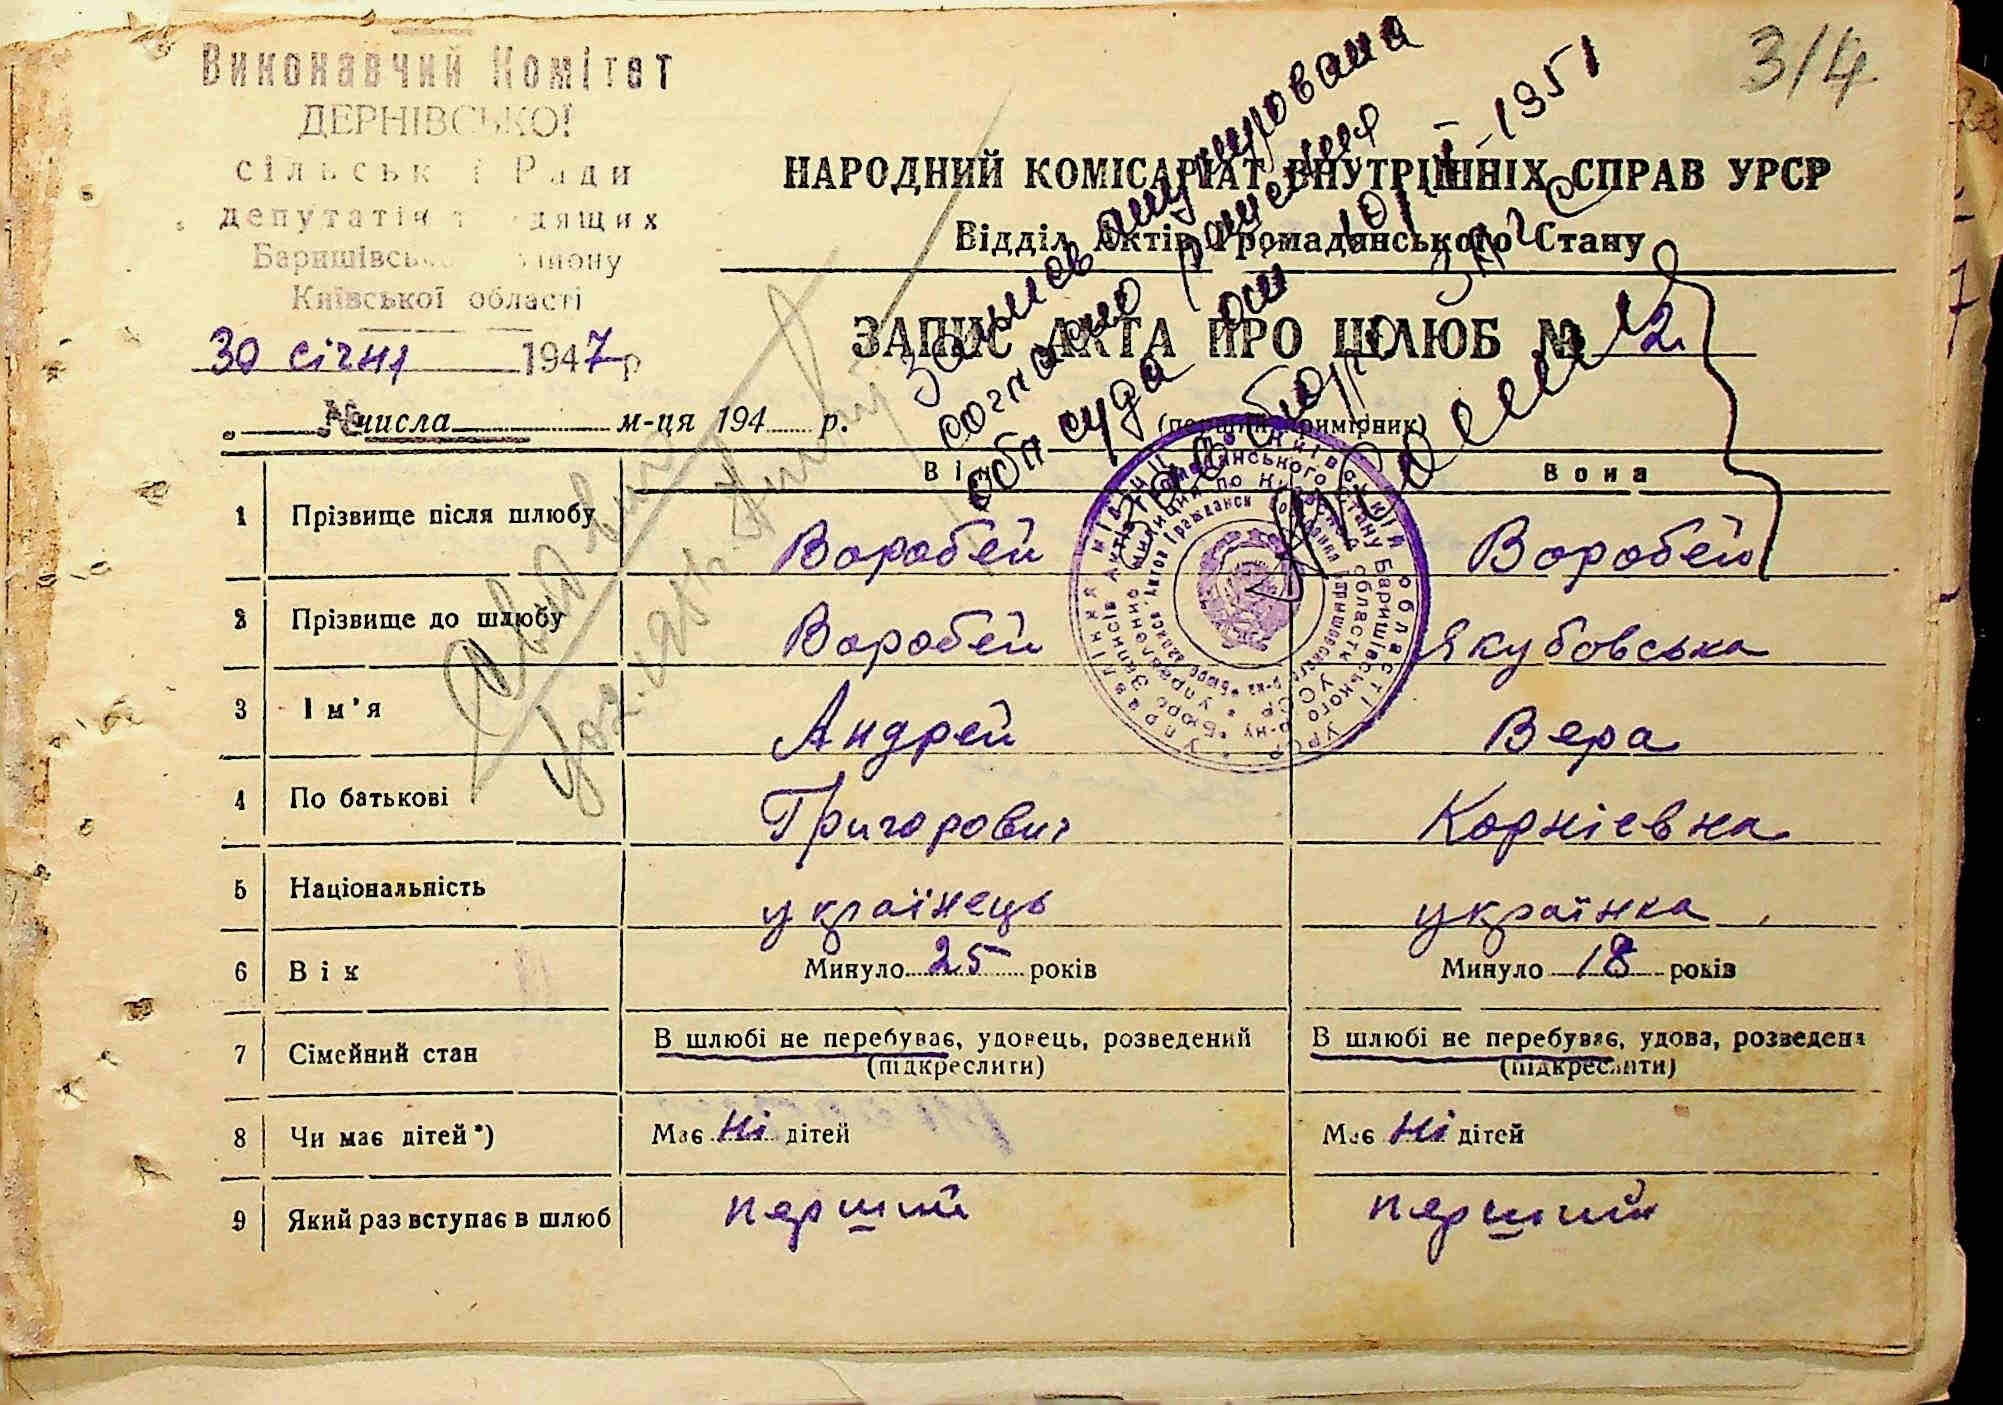 3/4
Виконавчий Комітет
ДЕРНІВСЬКОЇ
сільської Ради
депутатів трудящих
Баришівського району
Київської області
30 січня 1947 р
№
НАРОДНИЙ КОМІСАРІАТ ВНУТРІШНІХ СПРАВ УРСР
Відділ Актів Громадянського Стану
ЗАПИС АКТА ПРО ШЛЮБ № 2
„ числа м-ця 194 р.
(перший примірник)
анулирована
согласно решения
суда от 10/I-1951
Він Вона
1 Прізвище після шлюбу Воробей Воробей
2 Прізвище до шлюбу Воробей Якубовська
3 Ім'я Андрей Вера
4 По батькові Григорович Корніевна
5 Національність українець українка
6 Вік Минуло 25 років Минуло 18 років
7 Сімейний стан В шлюбі не перебуває, удовець, розведений (підкреслити) В шлюбі не перебуває, удова, розведена (підкреслити)
8 Чи має дітей*) Має Ні дітей Має Ні дітей
9 Який раз вступає в шлюб перший перший